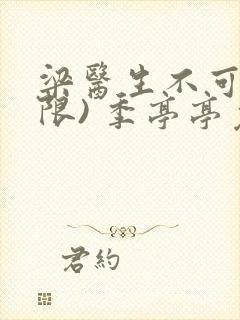 梁醫生不可
限)季亭亭
君約